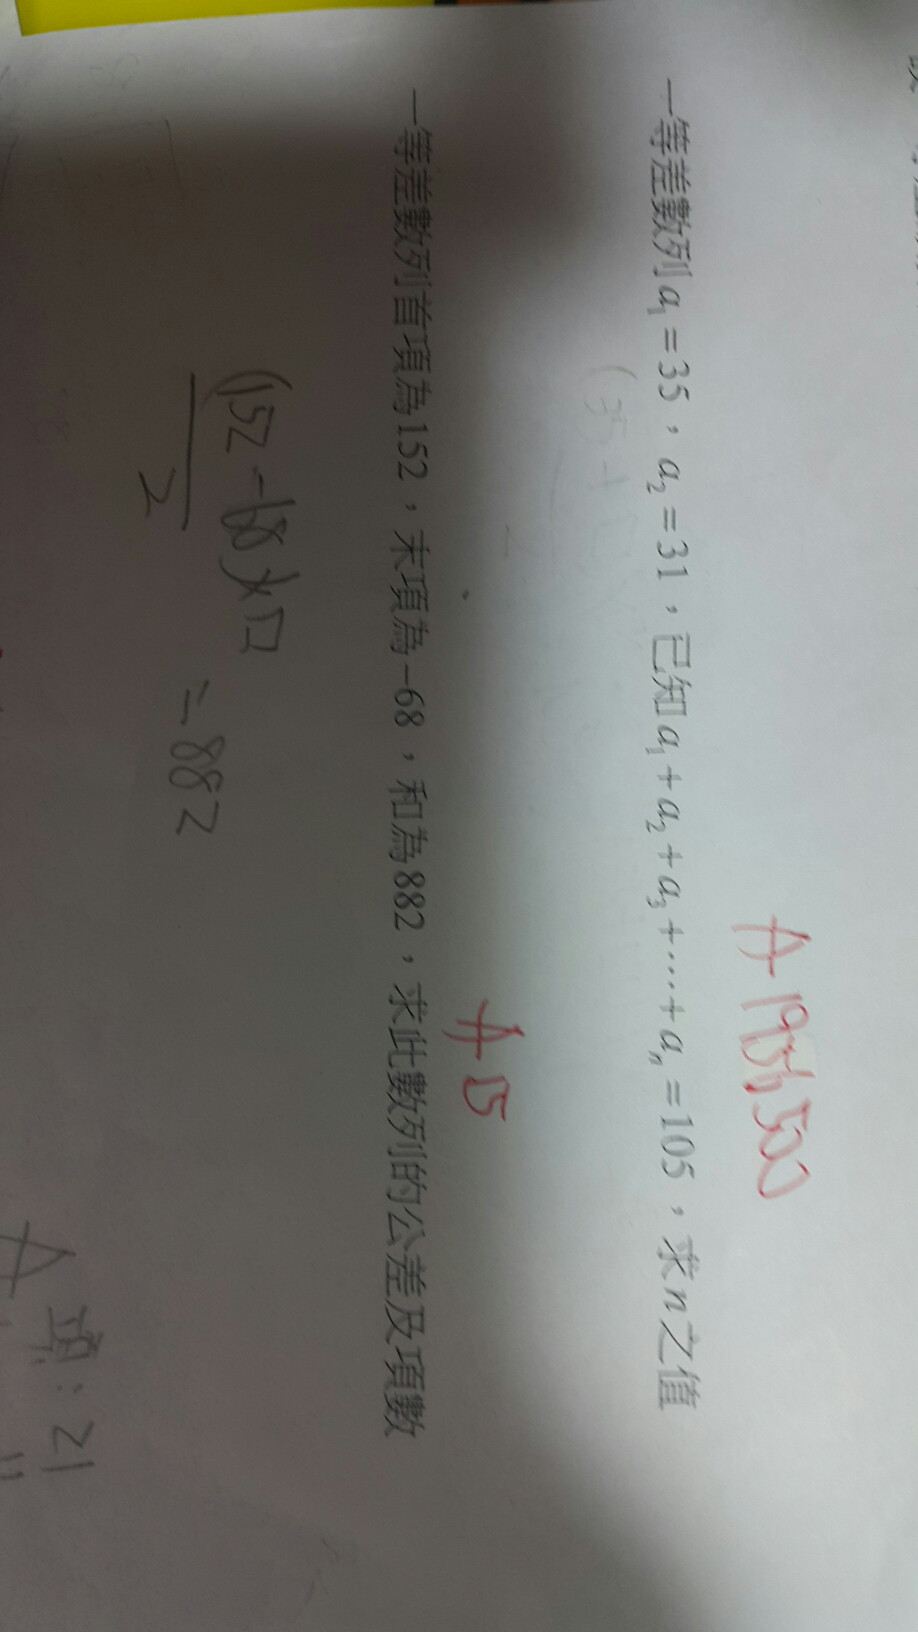 A 195,500
一等差數列a₁=35，a₂=31，已知a₁+a₂+a₃+⋯+aₙ=105，求n之值
(35+
A 15
一等差數列首項為152，末項為-68，和為882，求此數列的公差及項數
(152-68)×口
2
=882
A 項:21